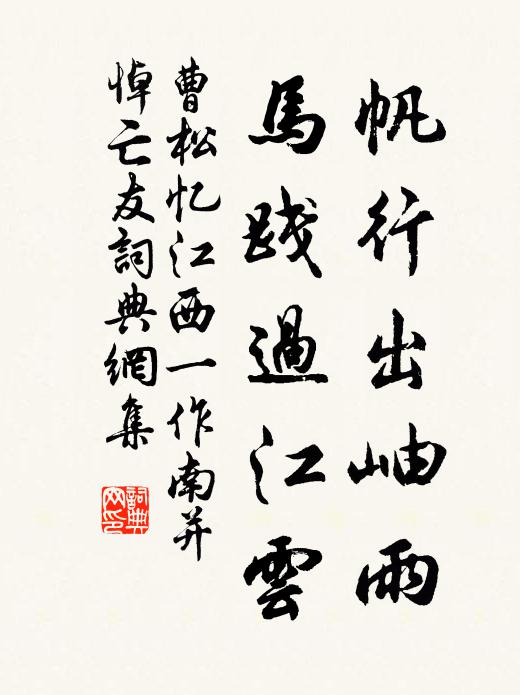 帆行出岫雨
馬踐過江雲
曹松忆江西一作南并
悼亡友詞典網集
詞典网印